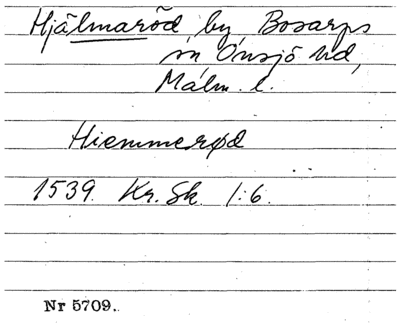 Hjälmaröd, by, Bosarps
sn, Onsjö hd,
Malm. l.
Hiemmerød
1539. Kr. Sk. 1:6.
Nr 5709.